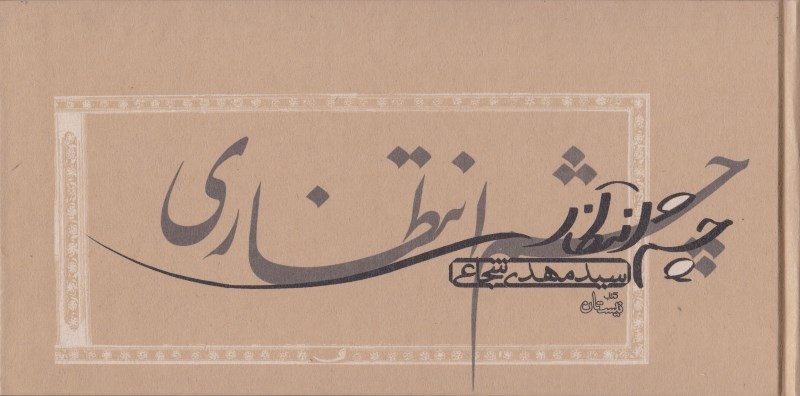 چشم انتظاری
چشم انتظاری
سید مهدی شجاعی
کتاب
نیستان